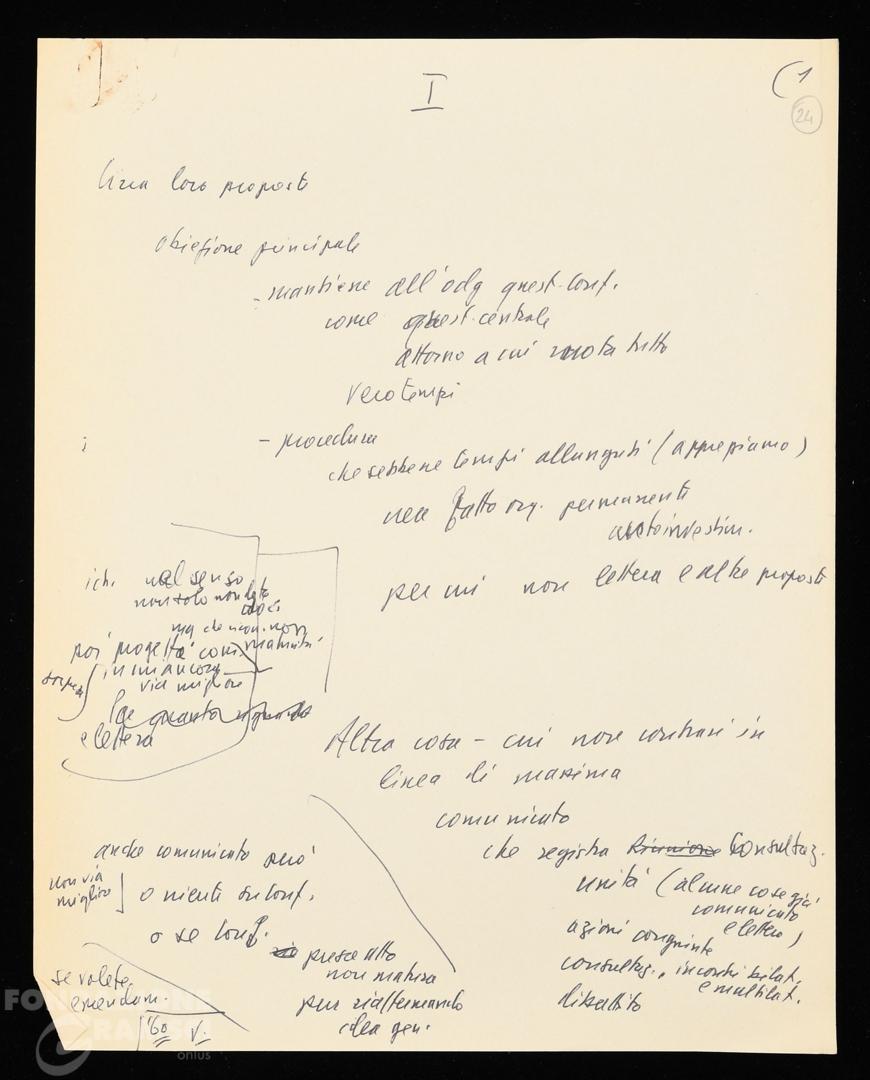 I
(1
24
Circa loro proposte
obiezione principale
- mantiene all'odg quest. conf.
come quest. centrale
attorno a cui ruota tutto
Vero tempi
- procedura
che sebbene tempi allungati (apprezziamo)
nen fatto org. permanente
per cui non lettera e altre proposte
nel senso
non solo non data
ma che non
poi progetto com.
in mancanza
via migliore
e lettera
Altra cosa - cui non contrari in
linea di massima
comunicato
che registra Riunione Consultaz.
unità (alcune cose già
comunicato
e lettera)
azioni congiunte
consultaz., incontri bilat.
e multilat.
dibattito
anche comunicato però
non via
migliore
o niente su conf.
o se conf.
prese atto
non matura
pur riaffermando
idea gen.
se volete
emendam.
'60 V.
FONDAZIONE
GRAMSCI
onlus